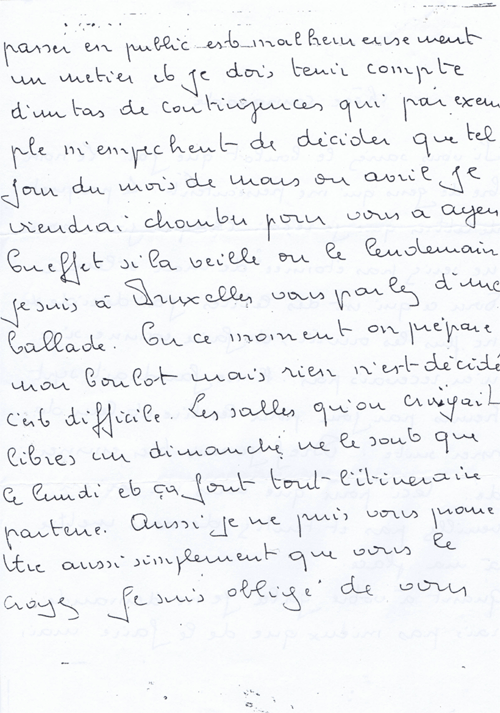 passer en public est malheureusement
un metier et je dois tenir compte
d'un tas de contingences qui par exem
ple m'empechent de décider que tel
jour du mois de mars ou avril je
viendrai chanter pour vous a agen
En effet si la veille ou le lendemain
je suis à Bruxelles vous parlez d'une
ballade. En ce moment on prépare
mon boulot mais rien n'est décidé
c'est difficile. Les salles qu'on croyait
libres un dimanche ne le sont que
le lundi et ça fout tout l'itineraire
par terre. Aussi je ne puis vous prome
ttre aussi simplement que vous le
croyez Je suis obligé de vous